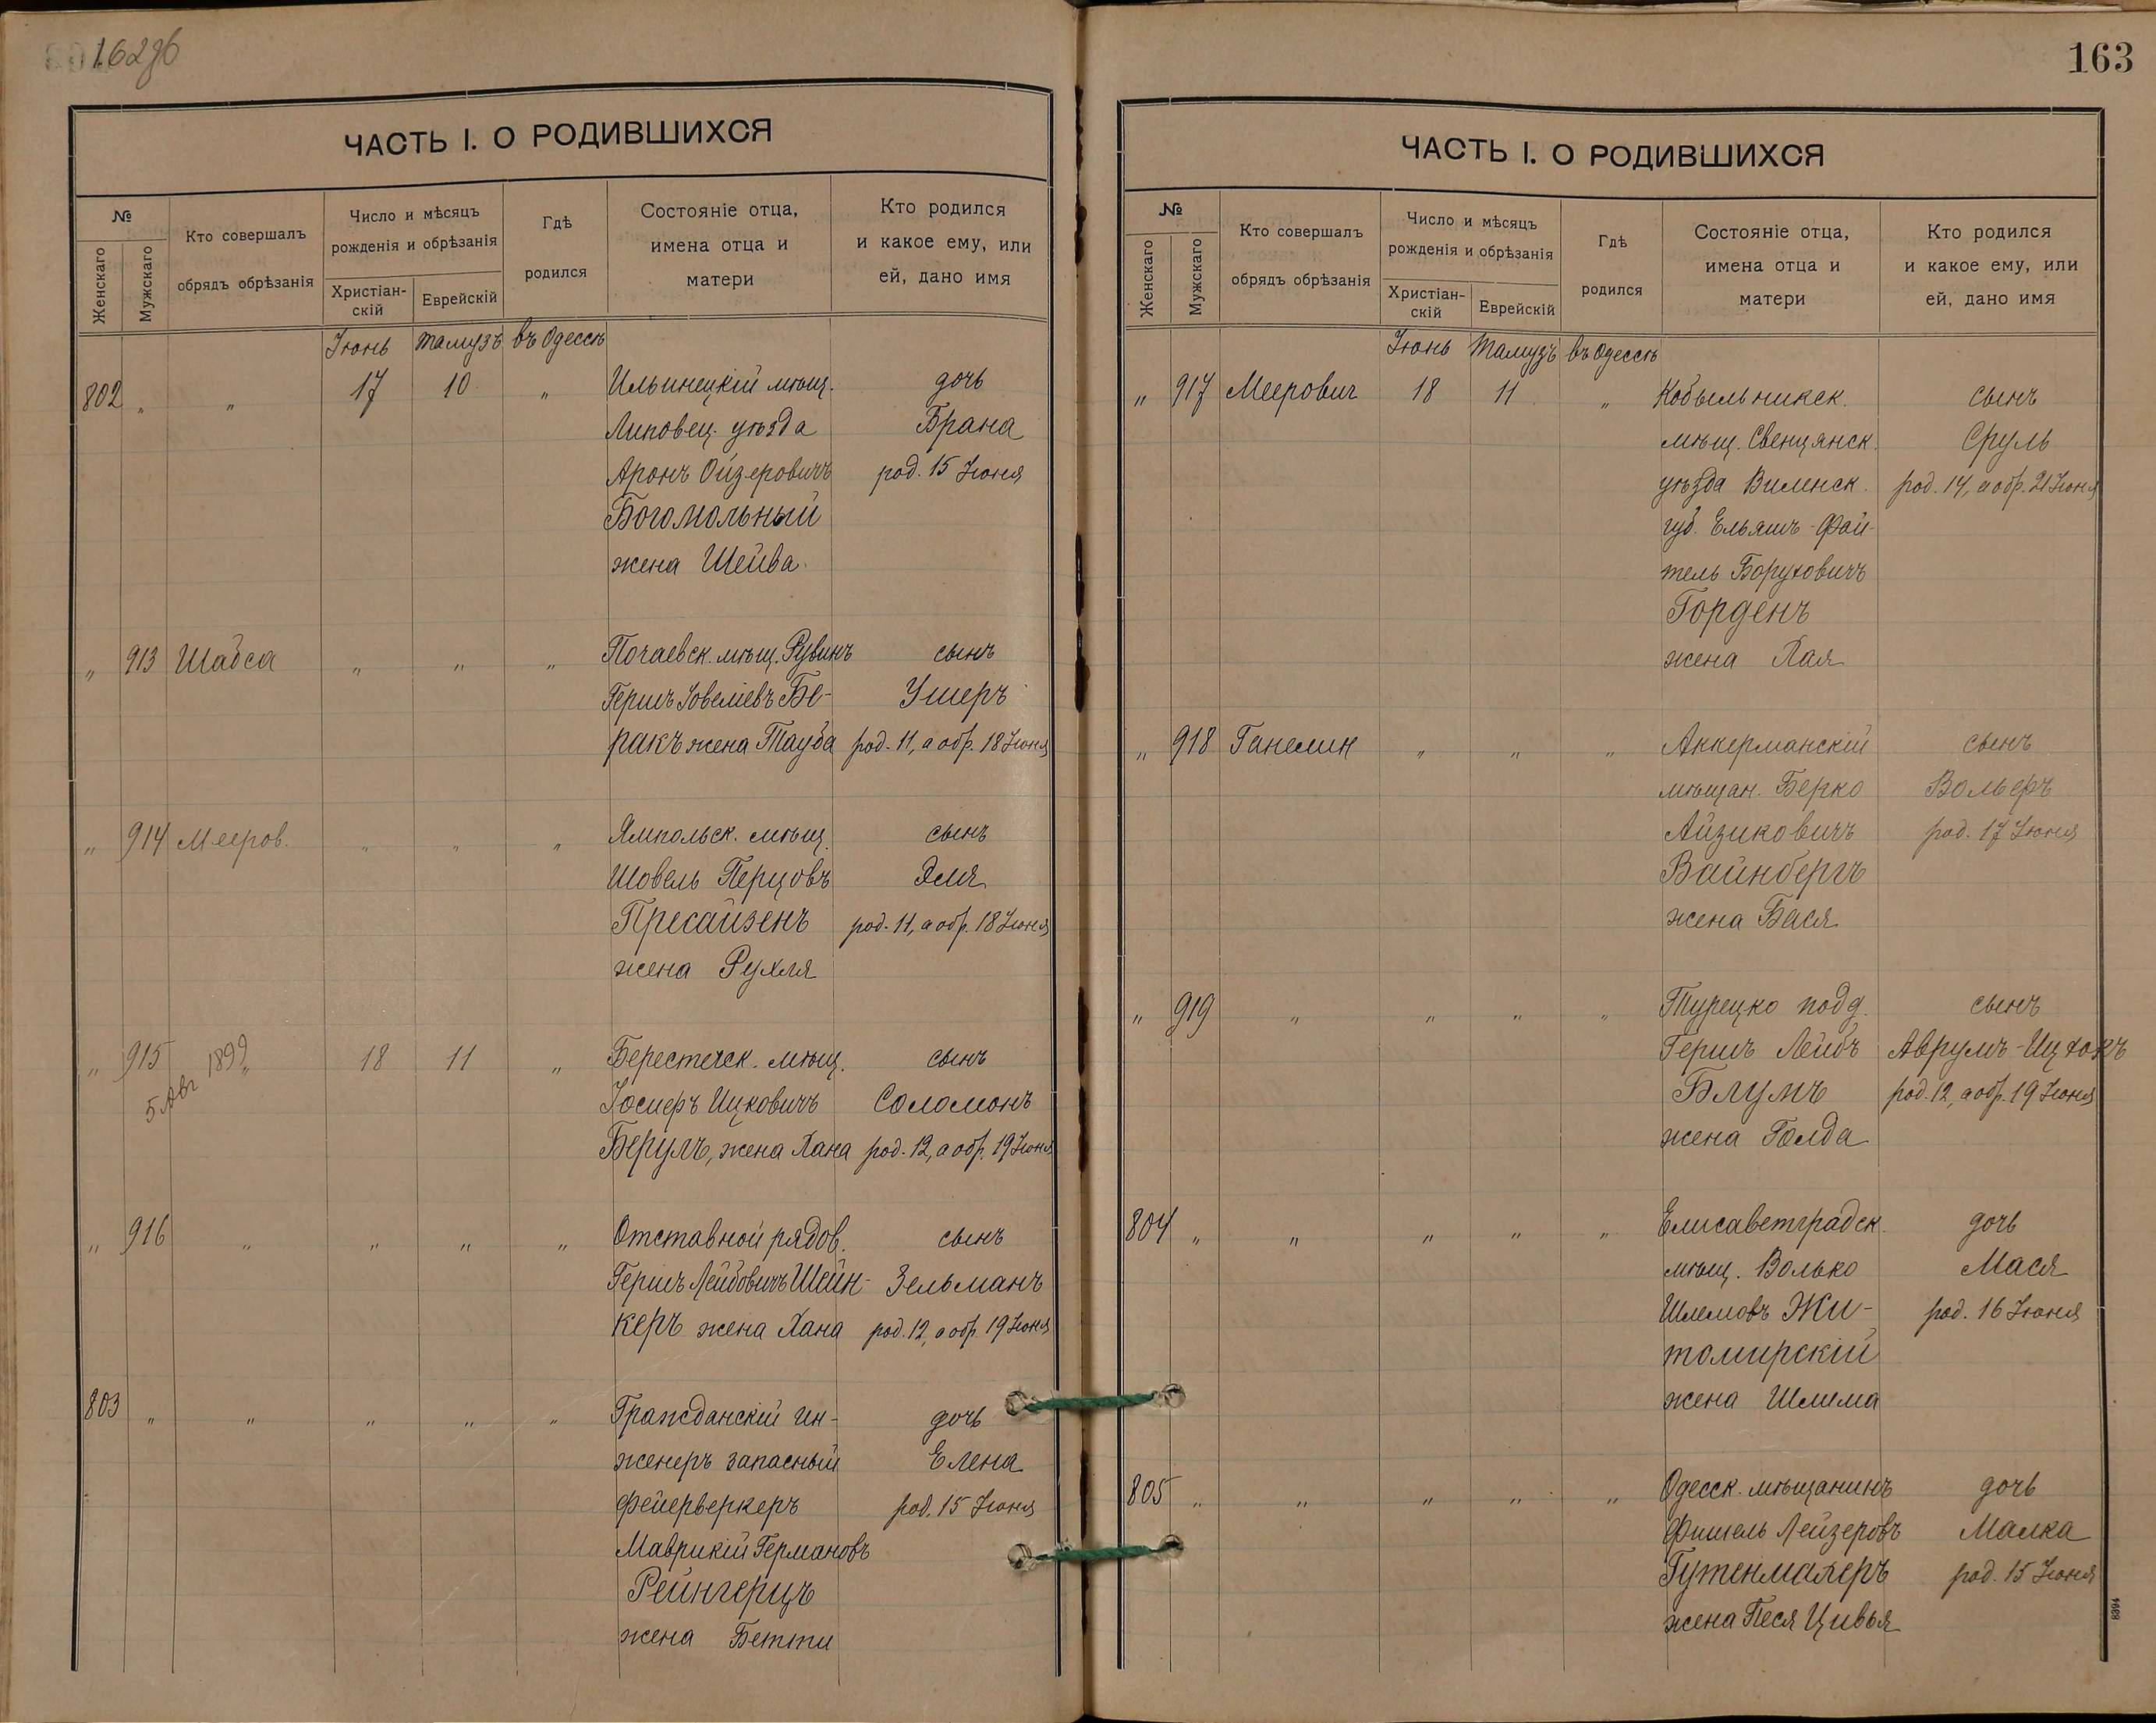 162об
ЧАСТЬ I. О РОДИВШИХСЯ
№
Женскаго
Мужскаго
Кто совершалъ
обрядъ обрѣзанія
Число и мѣсяцъ
рожденія и обрѣзанія
Христіан-
скій
Еврейскій
Гдѣ
родился
Состояніе отца,
имена отца и
матери
Кто родился
и какое ему, или
ей, дано имя
Іюнь Тамузъ въ Одессѣ
802 „ „ 17 10 „ Ильинецкій мѣщ. дочь
Липовец. уѣзда Брана
Аронъ Ойзеровичъ род. 15 Іюня
Богомольный
жена Шейва
„ 913 Шабса „ „ „ Почаевск. мѣщ. Рувинъ сынъ
Гершъ Іовеліевъ Бе- Ушеръ
ракъ жена Тауба род. 11, а обр. 18 Іюня
„ 914 Мееров. „ „ „ Ямпольск. мѣщ. сынъ
Шовель Перцовъ Эля
Пресайзенъ род. 11, а обр. 18 Іюня
жена Рухля
„ 915 „ 18 11 „ Берестечск. мѣщ. сынъ
5 Авг 1899
Іосиеръ Ицковичъ Соломонъ
Берулъ, жена Хана род. 12, а обр. 19 Іюня
„ 916 „ „ „ „ Отставной рядов. сынъ
Гершъ Лейбовичъ Шейн- Зельманъ
керъ жена Хана род. 12, а обр. 19 Іюня
803 „ „ „ „ „ Гражданскій ин- дочь
женеръ запасный Елена
фейерверкеръ род. 15 Іюня
Маврикій Германовъ
Рейнгерцъ
жена Бетти
163
ЧАСТЬ I. О РОДИВШИХСЯ
№
Женскаго
Мужскаго
Кто совершалъ
обрядъ обрѣзанія
Число и мѣсяцъ
рожденія и обрѣзанія
Христіан-
скій
Еврейскій
Гдѣ
родился
Состояніе отца,
имена отца и
матери
Кто родился
и какое ему, или
ей, дано имя
Іюнь Тамузъ въ Одессѣ
„ 917 Меерович 18 11 „ Кобыльникск. сынъ
мѣщ. Свенцянск. Сруль
уѣзда Виленск. род. 14, а обр. 21 Іюня
губ. Ельяшъ-Фай-
тель Боруховичъ
Горденъ
жена Хая
„ 918 Ганелин „ „ „ Аккерманскій сынъ
мѣщан. Берко Вольфъ
Айзиковичъ род. 17 Іюня
Вайнбергъ
жена Бася
„ 919 „ „ „ „ Турецко подд. сынъ
Гершъ Лейбъ Аврумъ-Ицхокъ
Блумъ род. 12, а обр. 19 Іюня
жена Голда
804 „ „ „ „ „ Елисаветградск. дочь
мѣщ. Волько Мася
Шлемовъ Жи- род. 16 Іюня
томирскій
жена Шлима
805 „ „ „ „ „ Одесск. мѣщанинъ дочь
Фишель Лейзеровъ Малка
Гутенмахеръ род. 15 Іюня
жена Песя Цивья
8394